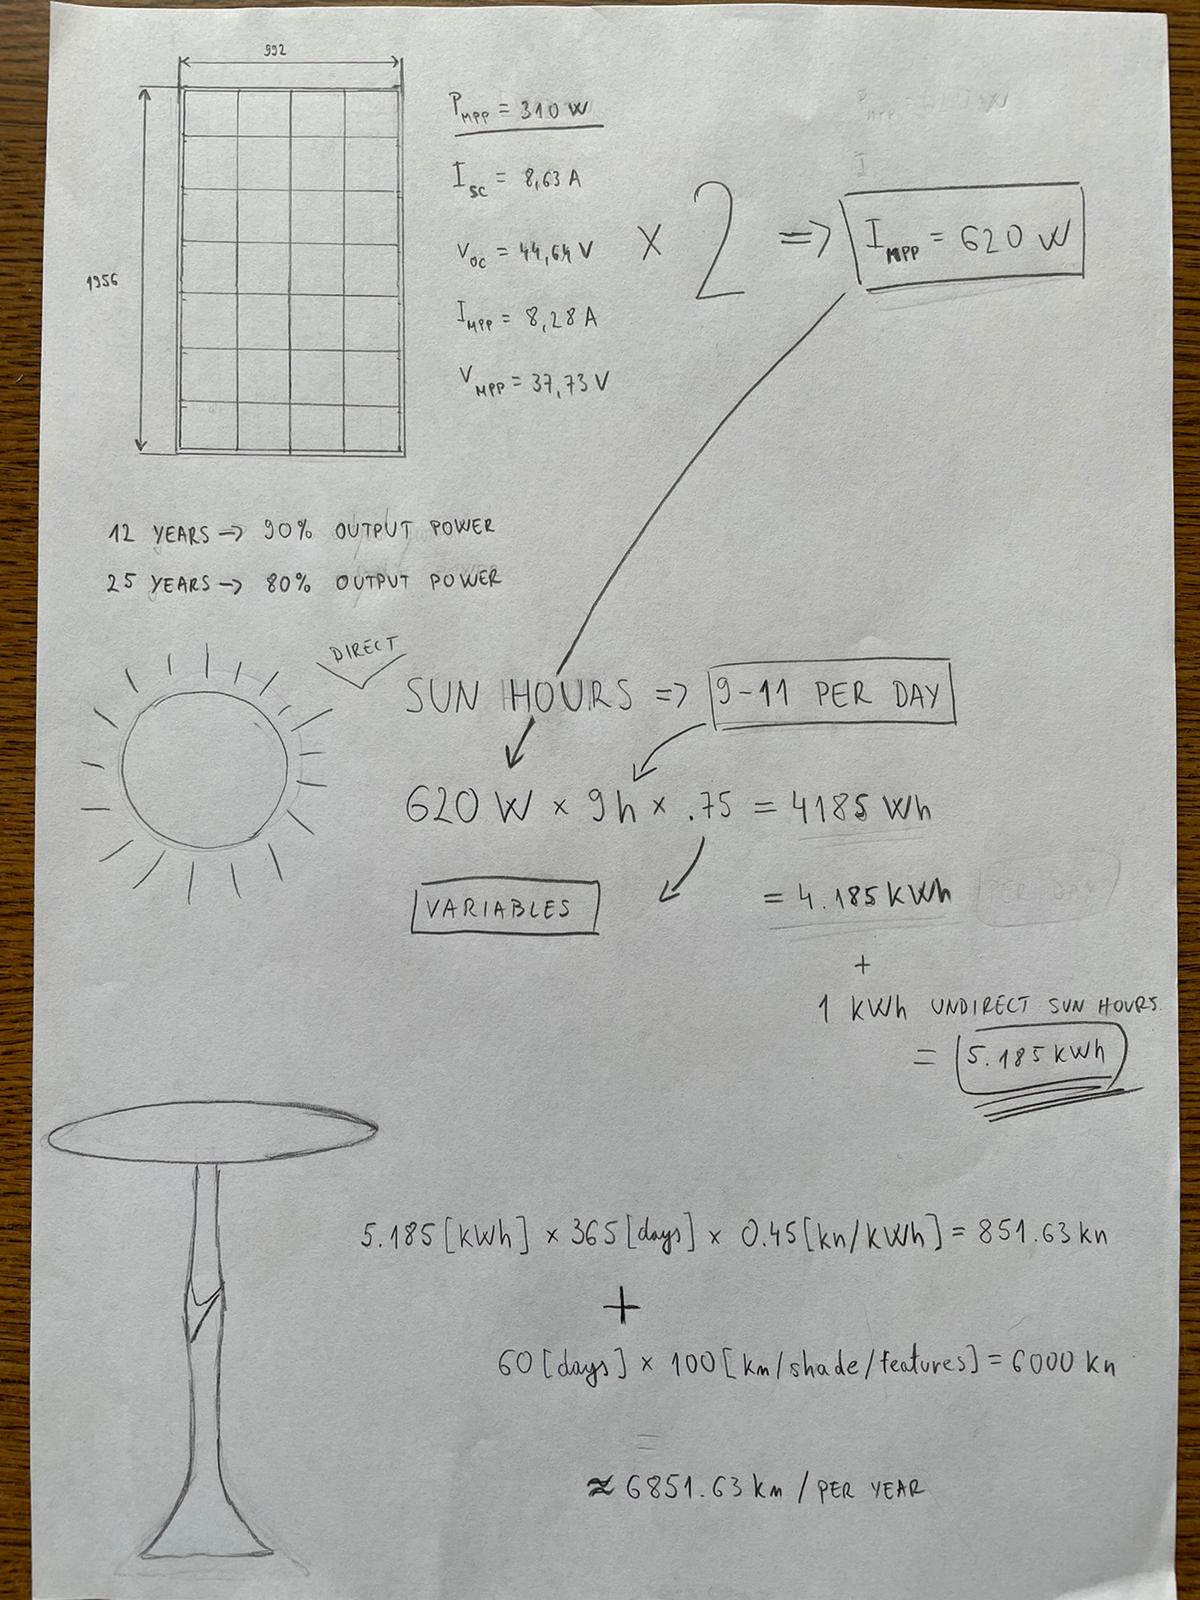 992
1956
P MPP = 310 W
I SC = 8,63 A
V OC = 44,64 V
I MPP = 8,28 A
V MPP = 37,73 V
x 2 => I MPP = 620 W
12 YEARS -> 90% OUTPUT POWER
25 YEARS -> 80% OUTPUT POWER
DIRECT
SUN HOURS => 9-11 PER DAY
620 W x 9h x .75 = 4185 Wh
VARIABLES
= 4.185 kWh
PER DAY
+
1 kWh UNDIRECT SUN HOURS
= 5.185 kWh
5.185 [kWh] x 365 [days] x 0.45 [kn/kWh] = 851.63 kn
+
60 [days] x 100 [kn/shade/features] = 6000 kn
=
≈ 6851.63 kn / PER YEAR